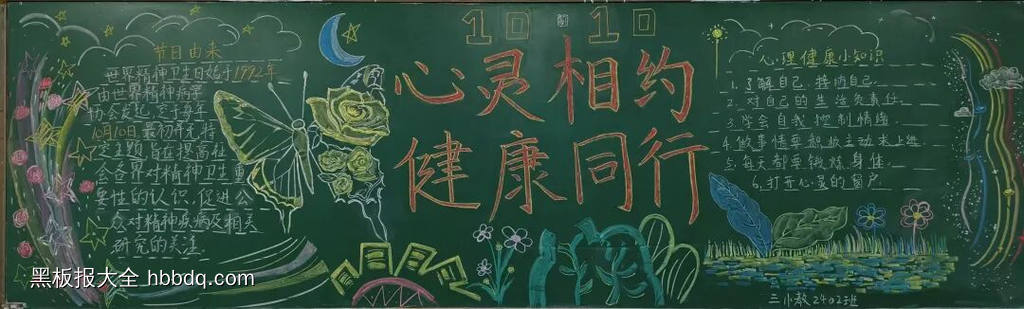 10 10
心灵相约
健康同行
节日由来
世界精神卫生日始于1992年
由世界精神病学
协会发起，定于每年
10月10日，最初并无特
定主题旨在提高社
会各界对精神卫生重
要性的认识，促进公
众对精神疾病及相关
研究的关注
心理健康小知识
1.了解自己，接纳自己
2.对自己的生活负责任
3.学会自我控制情绪
4.做事情要积极主动求上进
5.每天都要锻炼身体
6.打开心灵的窗户
三小教2402班
黑板报大全 hbbdq.com